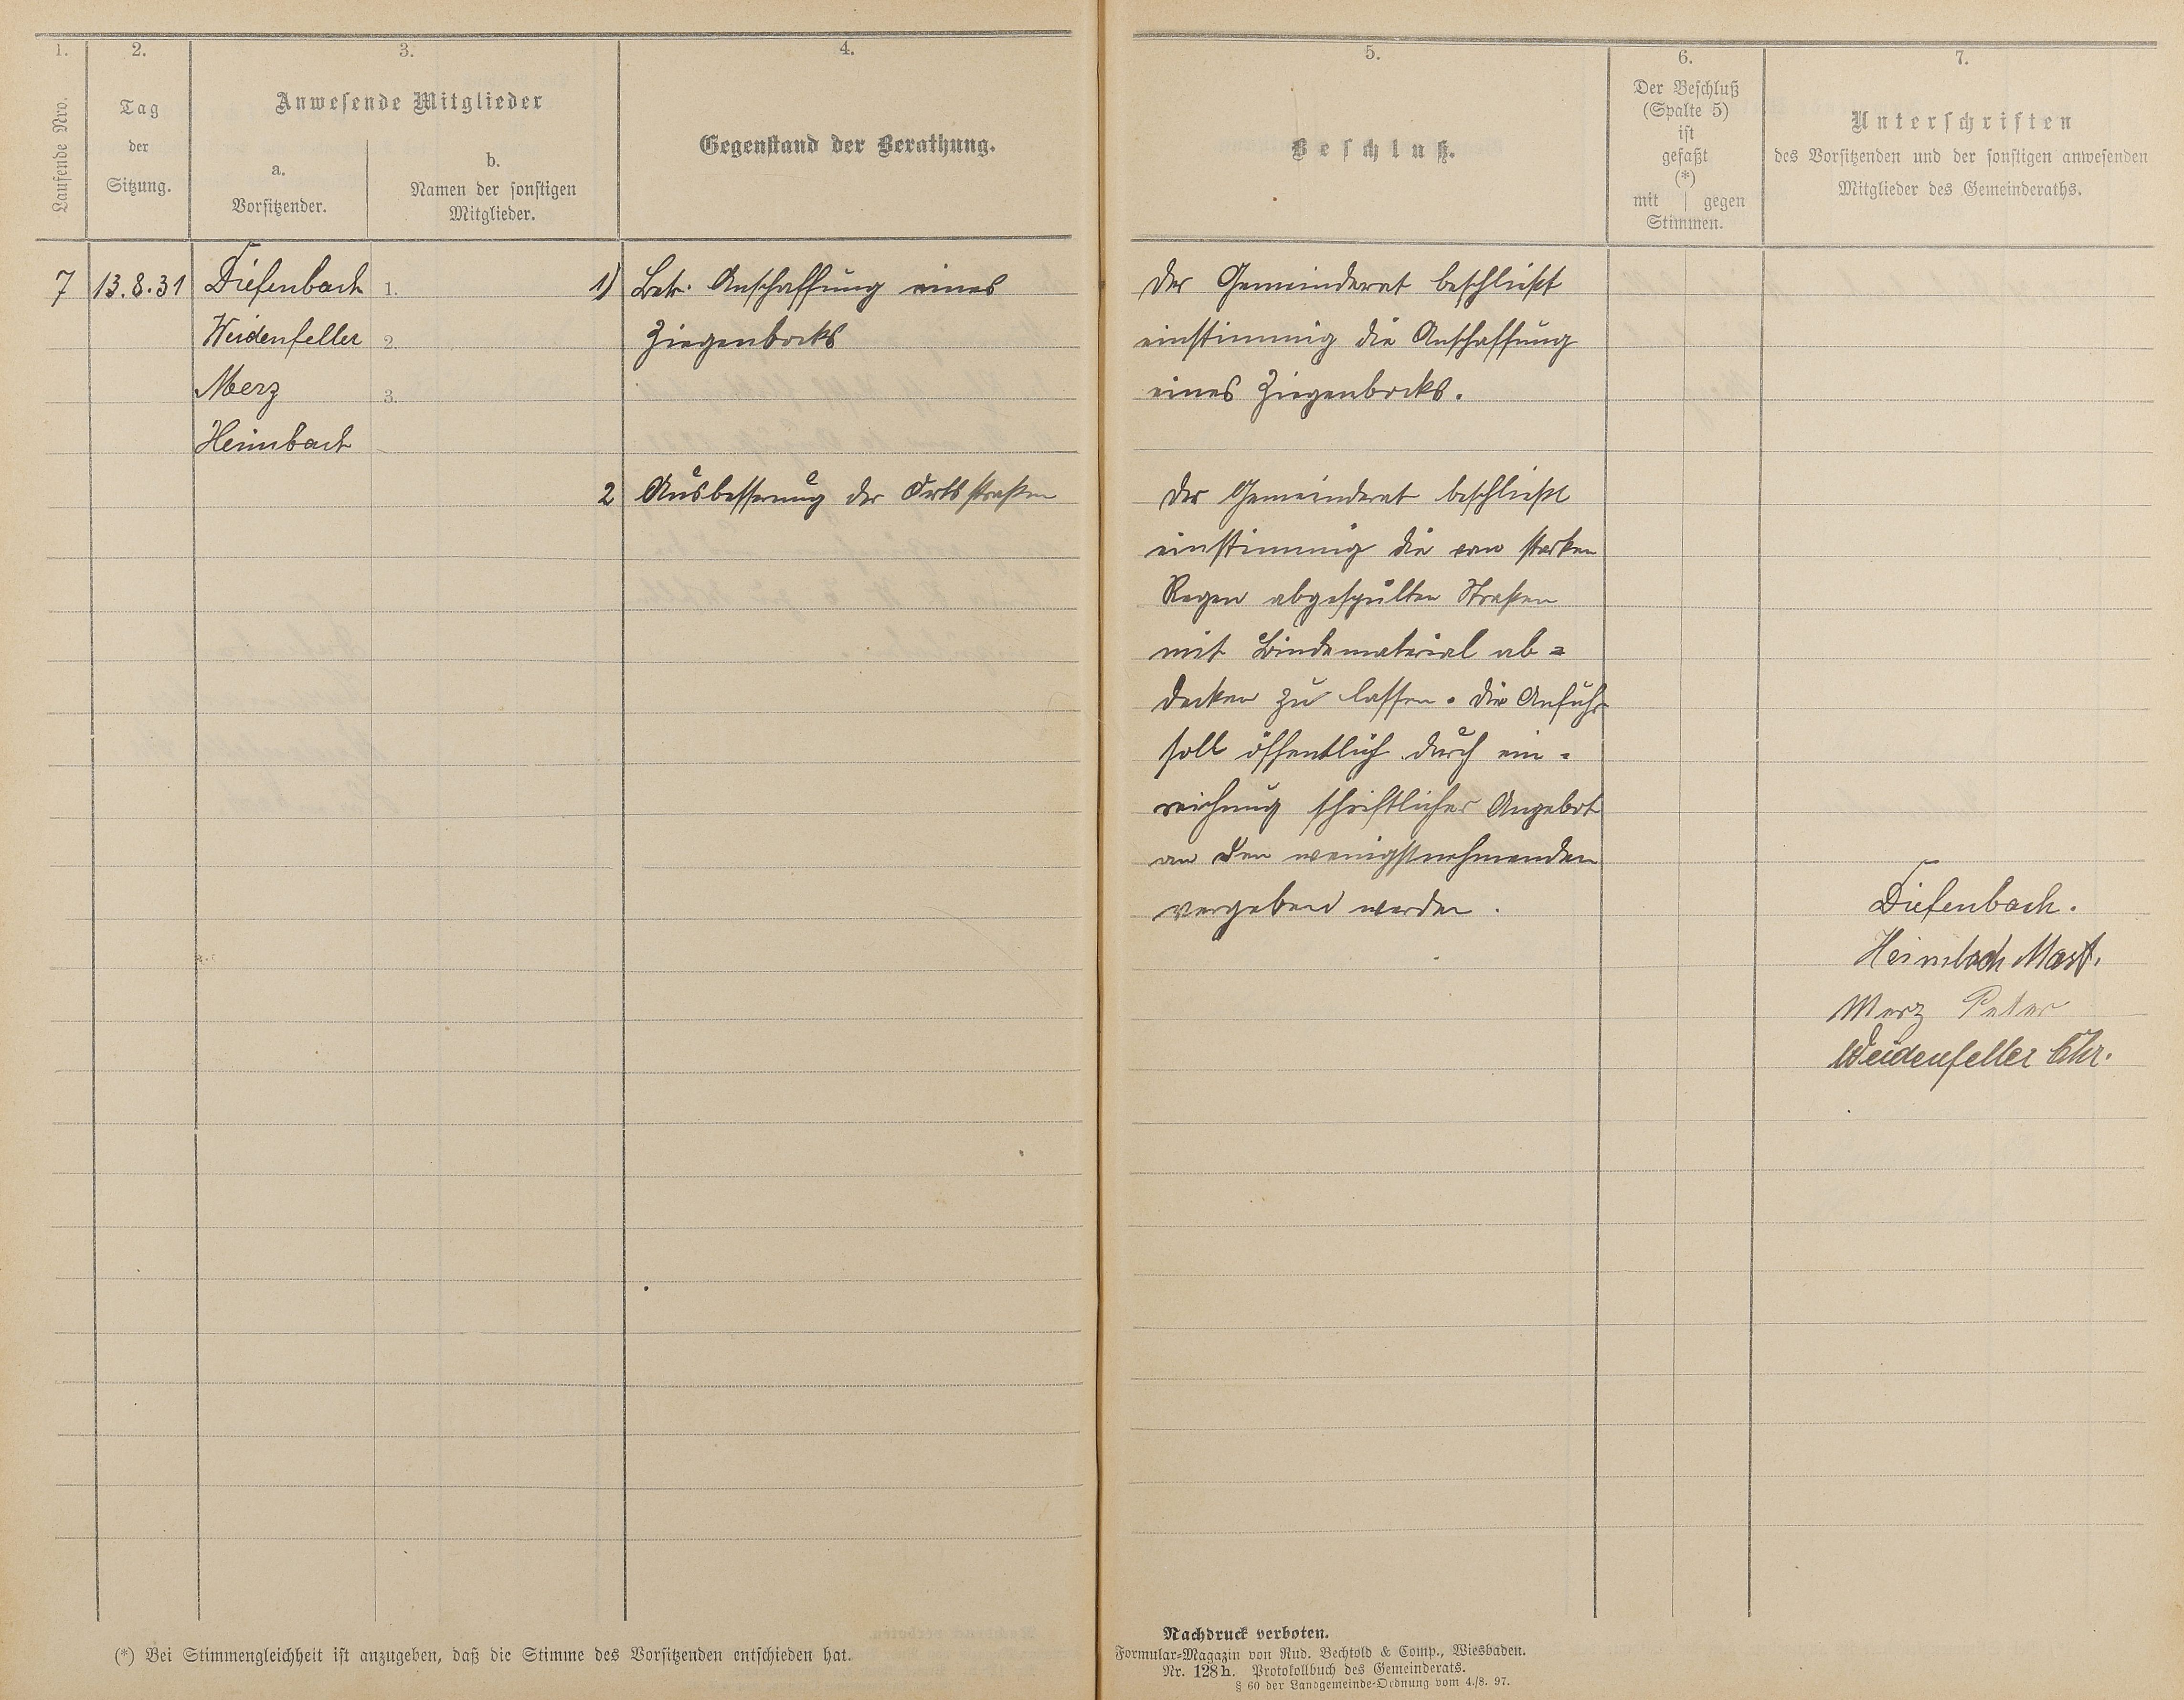 1.
2.
3.
4.
Laufende Nro.
Tag
der
Sitzung.
Anwesende Mitglieder
a.
Vorsitzender.
b.
Namen der sonstigen
Mitglieder.
Gegenstand der Berathung.
7 13.8.31 Diefenbach 1. 1) Betr. Anschaffung eines
Weidenfeller 2. Ziegenbocks
Merz 3.
Heimbach
2 Ausbesserung der Ortsstraßen
(*) Bei Stimmengleichheit ist anzugeben, daß die Stimme des Vorsitzenden entschieden hat.
5.
6.
7.
Beschluß.
Der Beschluß
(Spalte 5)
ist
gefaßt
(*)
mit gegen
Stimmen.
Unterschriften
des Vorsitzenden und der sonstigen anwesenden
Mitglieder des Gemeinderaths.
Der Gemeinderat beschließt
einstimmig die Anschaffung
eines Ziegenbocks.
Der Gemeinderat beschließt
einstimmig die vom starken
Regen abgespülten Straßen
mit Bindematerial ab=
decken zu lassen. Die Anfuhr
soll öffentlich durch ein=
reichung schriftlicher Angebot
an den wenigstnehmenden
vergeben werden.
Diefenbach.
Heimbach
Merz Peter
Weidenfeller Chr.
Nachdruck verboten.
Formular=Magazin von Rud. Bechtold & Comp., Wiesbaden.
Nr. 128h. Protokollbuch des Gemeinderats.
§ 60 der Landgemeinde=Ordnung vom 4./8. 97.